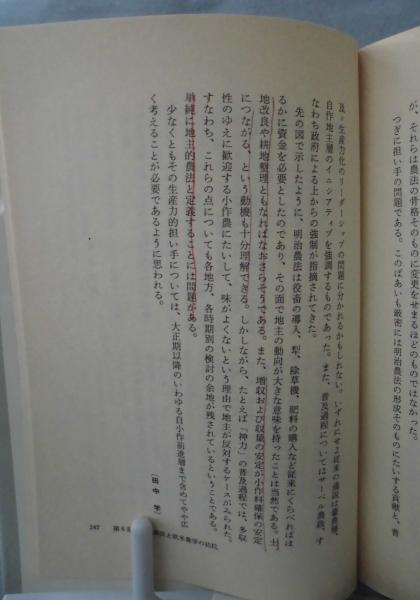 が、それらは農法の骨格そのものに変更をせまるほどのものではなかった。
つぎに担い手の問題である。このばあいも厳密には明治農法の形成そのものにたいする貢献と、普
及・生産力化のリーダーシップの問題に分かれるかもしれない。いずれにせよ従来の通説は豪農層、
自作地主層のイニシアティブを強調するものであった。また、普及過程についてはサーベル農政、す
なわち政府による上からの強制が指摘されてきた。
先の図で示したように、明治農法は役畜の導入、犁、除草機、肥料の購入など従来にくらべればは
るかに資金を必要としたのであり、その面で地主の動向が大きな意味を持ったことは当然である。土
地改良や耕地整理ともなればなおさらそうである。また、増収および収量の安定が小作料確保の安定
につながる、という動機も十分理解できる。しかしながら、たとえば「神力」の普及過程では、多収
性のゆえに歓迎する小作農にたいして、味がよくないという理由で地主が反対するケースがみられた。
すなわち、これらの点についても各地方、各時期別の検討の余地が残されているということである。
単純に地主的農法と定義することには問題がある。
少なくともその生産力的担い手については、大正期以降のいわゆる自小作前進層まで含めてやや広
く考えることが必要であるように思われる。
〔田中 学〕
247 第6章 農法と欧米農学の拮抗